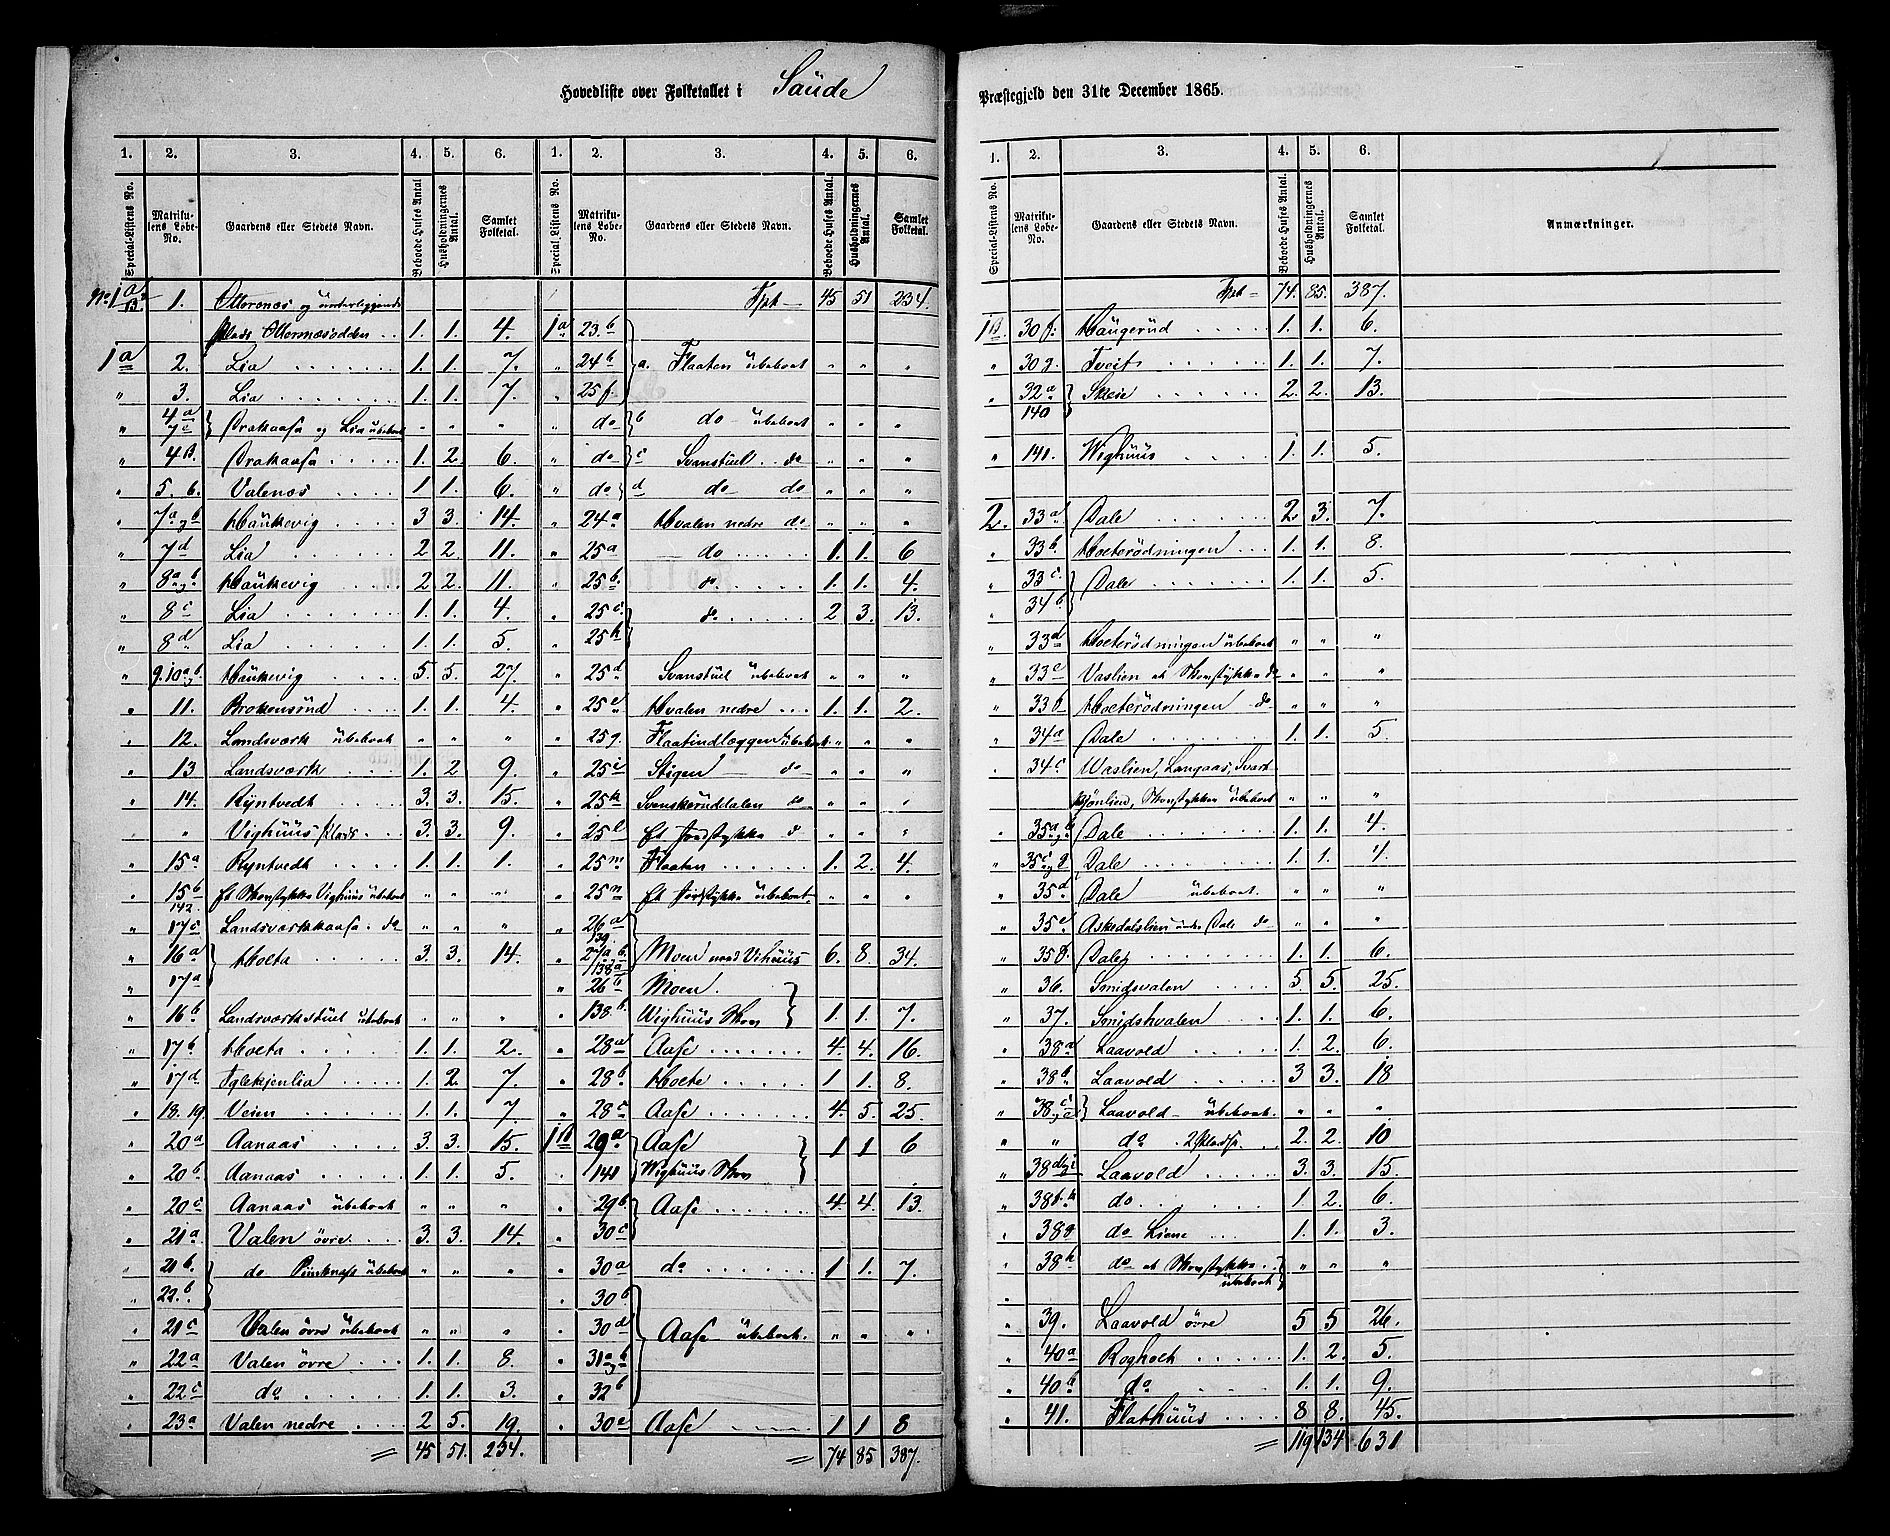 Hovedliste over Folketallet i Saude
1. 2. 3. 4. 5. 6. 1. 2. 3. 4. 5. 6.
Special-Listens No. Matrikulens Løbe-No. Gaardens eller Stedets Navn. Beboede Huses Antal. Husholdningernes Antal. Samlet Folketal. Special-Listens No. Matrikulens Løbe-No. Gaardens eller Stedets Navn. Beboede Huses Antal. Husholdningernes Antal. Samlet Folketal.
No 1 a 1. Otternæs og underliggende
Plads Otternæsodden . . 1. 1. 4.
1 a 2. Lia . . . . . . 1. 1. 7.
" 3. Lia . . . . . . . 1. 1. 7.
" 4a 7c Brakaasa og Lia ubeboet " " "
" 4B. Brakaasa . . . . 1. 2. 6.
" 5. 6. Valenæs . . . . 1 1. 6.
" 7a og b Haukevig . . . . 3 3. 14.
" 7d Lia . . . . . . 2 2. 11.
" 8a og b Haukevig . . . . 2 2. 11.
" 8c Lia . . . . . . . 1. 1. 4.
" 8d Lia . . . . . . . 1. 1. 5.
" 9. 10a og b Haukevig . . . . . 5 5. 27.
" 11. Brokensund . . . . 1. 1. 4.
" 12. Landsværk ubeboet " " "
" 13 Landsværk . . . 1. 2 9.
" 14. Ryntvedt . . . . 3. 3. 15.
" " Vighuus Plads . . . 3. 3. 9.
" 15a Ryntvedt . . . . 1. 1. 1.
" 15b 142. Et Skovstykke Vighuus ubeboet " " "
" 17c Landsværkkaasa . do " " "
" 16a Hoeta . . . . . 3. 3. 14.
" 17a
" 16b Landsværkstuel ubeboet " " "
" 17b Hoeta . . . . . 1. 1. 2.
" 17d Iglekjenlia . . . . . 1. 2. 7.
" 18. 19. Veim . . . . . . 1. 1. 7.
" 20a Aanaas . . . . . 3. 3. 15.
" 20b Aanaas . . . . . 1. 1. 5.
" 20c Aanaas ubeboet " " "
" 21a Valen övre . . . 3. 3. 14.
" 21b. do Pinknass ubeboet " " "
" 22.b
" 21c Valen övre ubeboet " " "
" 22a Valen övre . . . 1. 1. 8.
" 22c do . . . . . 1. 1. 3.
" 23a Valen nedre . . . 2 5. 19.
= 45 51. 234.
Tpt — 45 51 234.
1a 23.b
" 24b a. Flaaten ubeboet " " "
" 25f.
" do b do - ubeboet " " "
" do c Svanstuel . . do " " "
" do d do do " " "
" 24a Hvalen nedre do " " "
" 25a do . . . . . 1. 1. 6
" 25b. do . . . . . 1. 1. 4.
" 25c. do . . . . . 2 3. 13.
" 25h
" 25d Svanstuel ubeboet " " "
" 25e Hvalen nedre . . . 1. 1. 2.
" 25g. Flaatindlæggen ubeboet " " "
" 25i Stigen do " " "
" 25k Svenskeruddalen do " " "
" 25l Et Jordstykke do " " "
" 25m Flaaten . . . . . . 1. 2. 4.
" 25n Et Jordstykke ubeboet " " "
" 26a 139.
27a og b. 138a Moen med Vihuus 6. 8. 34.
" 26b Moen.
138b. Wighuus Skov 1. 1. 7.
" 28a Aase . . . . . . 4. 4. 16.
" 28b Hoete . . . . . . 1 1. 8.
" 28c Aase . . . . . . . 4. 5. 25.
1B 29a Aase 1 1 6
141 Wighuus Skov
" 29b Aase . . . . . . 4. 4. 13.
" 30c
" 30a do . . . . . . 1 1. 7.
" 30b.
" 30d Aase ubeboet. " " "
" 31a og b
" 32b
" 30e Aase . . . . . 1 1 8
= 74 85 387.
Præstegjeld den 31te December 1865.
1. 2. 3. 4. 5. 6.
Special-Listens No. Matrikulens Løbe-No. Gaardens eller Stedets Navn. Beboede Huses Antal. Husholdningernes Antal. Samlet Folketal. Anmærkninger.
Tpt — 74. 85. 387.
1B. 30f. Haugerud . . . . . 1. 1. 6.
" 30g. Tveit . . . . . . 1. 1. 7.
" 32a 140 Skeie . . . . . . 2. 2. 13.
" 141. Wighuus . . . . 1. 1. 5.
2. 33a Dale . . . . . . . 2 3. 7.
" 33b. Hoeterödningen . . . 1. 1. 8.
" 33c. Dale . . . . . . . 1. 1. 5.
" 34b
" 33d Hoeterödningen ubeboet " " "
" 33e Vaslien et Skovstykke do " " "
" 33f Hoeterödningen do " " "
" 34a Dale . . . . . . . 1. 1. 5.
" 34c Waslien, Langaas, Svart
kjönlien, Skovstykke ubeboet " " "
" 35a og b Dale . . . . . . 1. 1. 4.
" 35c og g Dale . . . . . . . 1. 1. 4.
" 35d Dale ubeboet. " " "
" 35e Askedalslien under Dale do " " "
" 35f. Dale . . . . . . . 1. 1. 6.
" 36. Smidsvalen . . . . 5 5. 25.
" 37. Smidshvalen . . . . 1. 1. 6.
" 38a Laavold . . . . . 1. 2. 6.
" 38b Laavold . . . . . 3 3. 18
" 38c Laavold - ubeboet. " " "
" " do . 2 Pladse. 2. 2. 10
" 38d og i Laavold . . . . . 3. 3. 15.
" do . . . . . . 1. 2. 6.
" 38g do Liene . . . 1. 1. 3.
" 38h do et Skovstykke . . ubeboet " " "
" 39. Laavold övre 5 5 26.
" 40a Rogholt . . . . . 1. 2. 5.
" 40b do . . . . . 1. 1. 9.
" 41. Flathuus . . . . 8 8. 45.
= 119 134 631